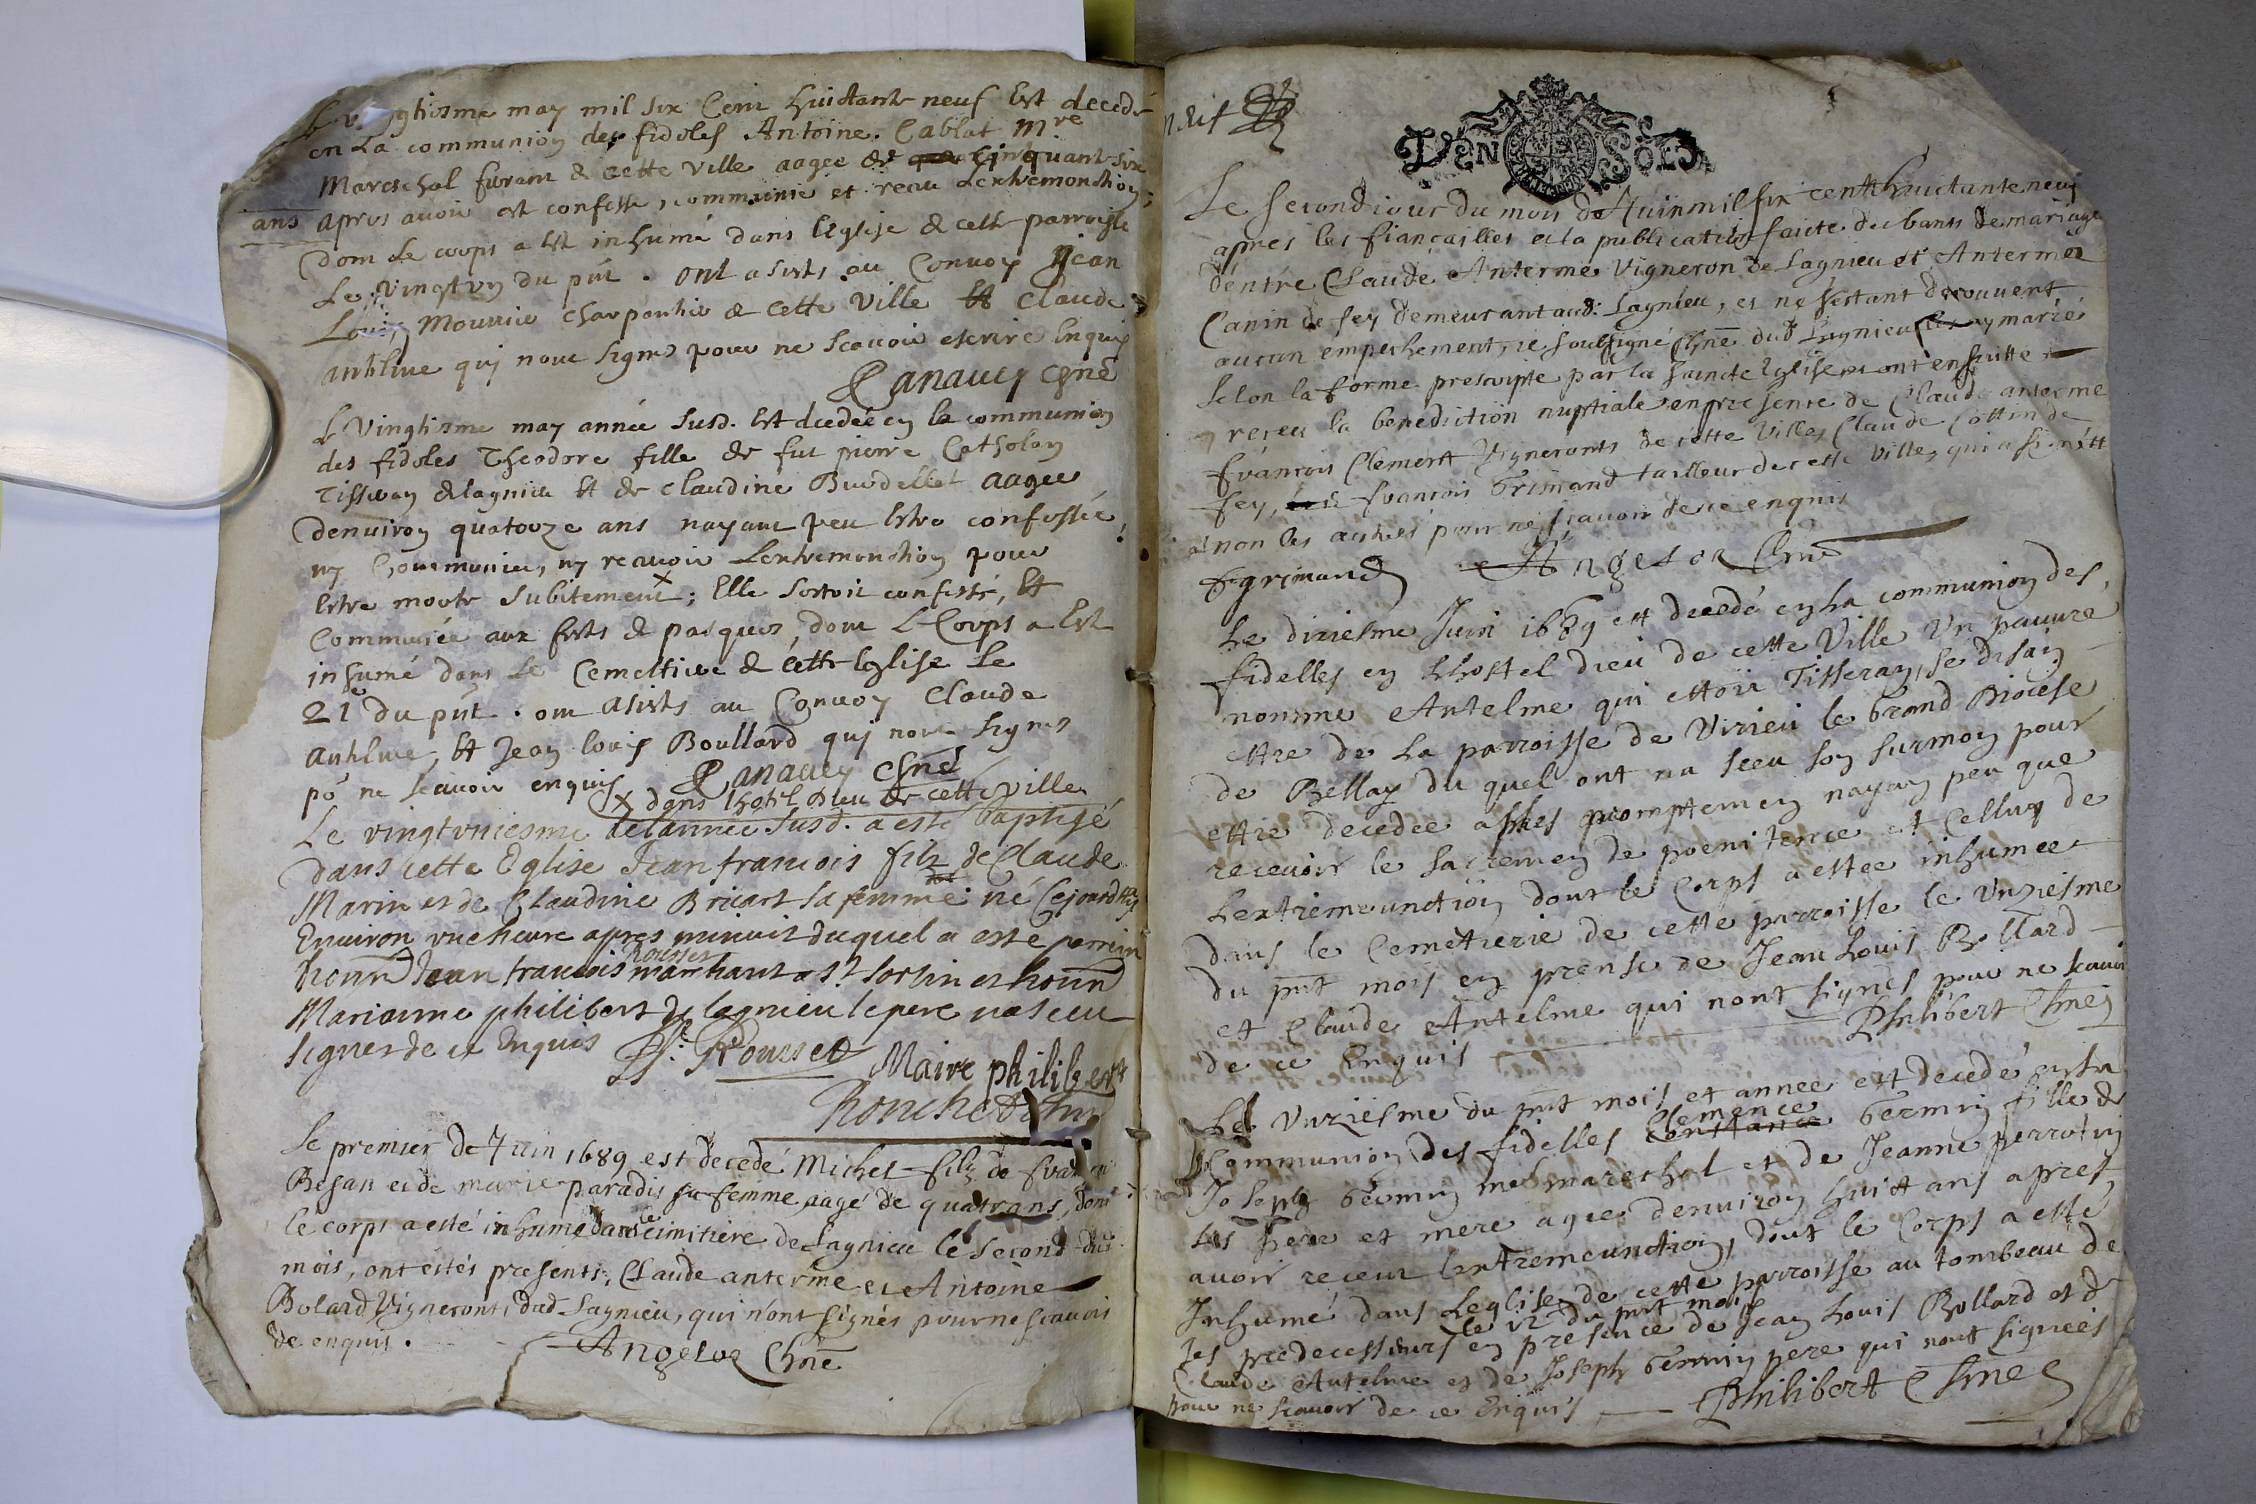 Le vingtiesme may mil six Cent huictante neuf Est decedé
en La communion des fidoles Antoine Cablat Mre
Mareschal ferrant de cette ville aagee de cinquante six
ans apres avoir est confesse, communié et receu Lextremonction,
dont Le corps a Est inhumé dans l'Eglise de cette parroisse
Le vingtvn du pnt. ont asistés au Convoy Jean
Louis Mourrier charpentier de cette ville Et Claude
anthelme qui nont signés pour ne scavoir escrire Enquis
Panauey chne
Le Vingtiesme may année susd. Est decedée en la communion
des fidoles Theodore fille de feu pierre Catholon
Tisseran de lagnieu Et de Claudine Burdellet aagee
denviron quatorze ans nayant peu Estre confessée,
ny Communiée, ny recevoir Lextremonction pour
Estre morte subitement x; Elle sortoit confessé, Et
Communiée aux festes de pasques, dont Le Corps a Est
inhumé dans Le Cemeltiere de cette Eglise Le
21e du pnt. ont asistés au Convoy Claude
anthelme, Et Jean louis Boullard qui nont signes
po ne scavoir enquis Panauey chne
x dans lhotel Dieu de cette ville
Le vingtvniesme de lannee susd. a esté baptisé
dans cette Eglise Jean francois filz de Claude
Marin et de Claudine Bricart sa femme né Cejourdhuy
Environ vne heure apres minuit duquel a esté parrein
honn Jean francois Rousset marchant a St sorlin et honn
Marianne philibert de lagnieu le pere na sceu
signer de ce Enquis Jf. Rousset Maire philibert
Ronchet chne
Le premier de Juin 1689 est decedé Michel filz de francois
Besan et de marie paradis sa femme aagé de quatrans, dont
le corps a esté inhumé dans ce cimitiere de Lagnieu le second dud
mois, ont estés presents, Claude anterme et Antoine
Bolard Vignerons dud Lagnieu, qui n'ont signés pour ne scavoir
de enquis. Angelot Chne
huit
DEN SOLS
Le second iour du mois de Juin mil six cent huictante neuf
apres les fiançailles et la publication faicte des bants de mariage
d'entre Claude Anterme Vigneron de Lagnieu et Anterme
Canin de fey demeurant aud. Lagnieu, et ne s'estant decouvert
aucun empechement, ie soussigné chne dud Lagnieu les ay mariés
selon la forme prescripte par la saincte Eglise et ont ensuitte
receu la benediction nuptiale en presence de Claude anterme
françois Clement Vignerons de cette Ville, Claude Cottin de
fey, francois Grimand tailleur de cette ville, qui a signé et
non les autres pour ne scavoir de ce enquis
f grimand Angelot Chne
Le dixiesme Juin 1689 est decedé en La communion des
fidelles en Lhostel dieu de cette Ville Un pauvre
nommé Antelme qui ettoit Tisseran, se disan
ettre de La parroisse de Virieu le Grand Diocese
de Bellay du quel ont na sceu son surnom pour
ettre decedee asses promptemen nayan peu que
recevoir le sacremen de poenitence et Celluy de
Lextremeunction dont le Corps a estee inhumee
dans le Cemetierie de cette parroisse le Unziesme
du pnt mois en prense de Jean Louis Bollard
et Claude Antelme qui nont signés pour ne scavoir
de ce Enquis Philibert Chne
Le Unziesme du pnt mois et annee est decedé en La
Communion des fidelles Clemence Germin fille de
Joseph Germin me mareschal et de Jeanne perrotin
Les pere et mere agee denviron huit ans apres
avoir receu lextremeunction, dont le Corps a esté
Inhumé dans Leglise de cette parroisse au tombeau de
ses predecesseurs le 12 du pnt mois en presence de Jean Louis Bollard et de
Claude Antelme et de Joseph Germin pere qui nont signees
pour ne scavoir de ce Enquis Philibert Chne